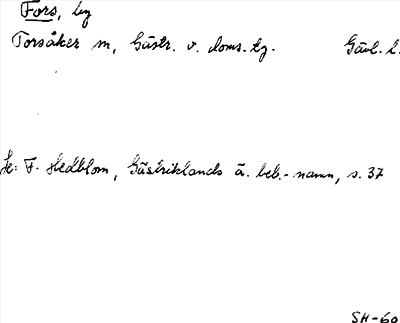 Fors, by
Torsåker sn, Gästr. v. doms. tg. Gävl. l.
Se: F. Hedblom, Gästriklands ä. beb.-namn, s. 37
SH-60